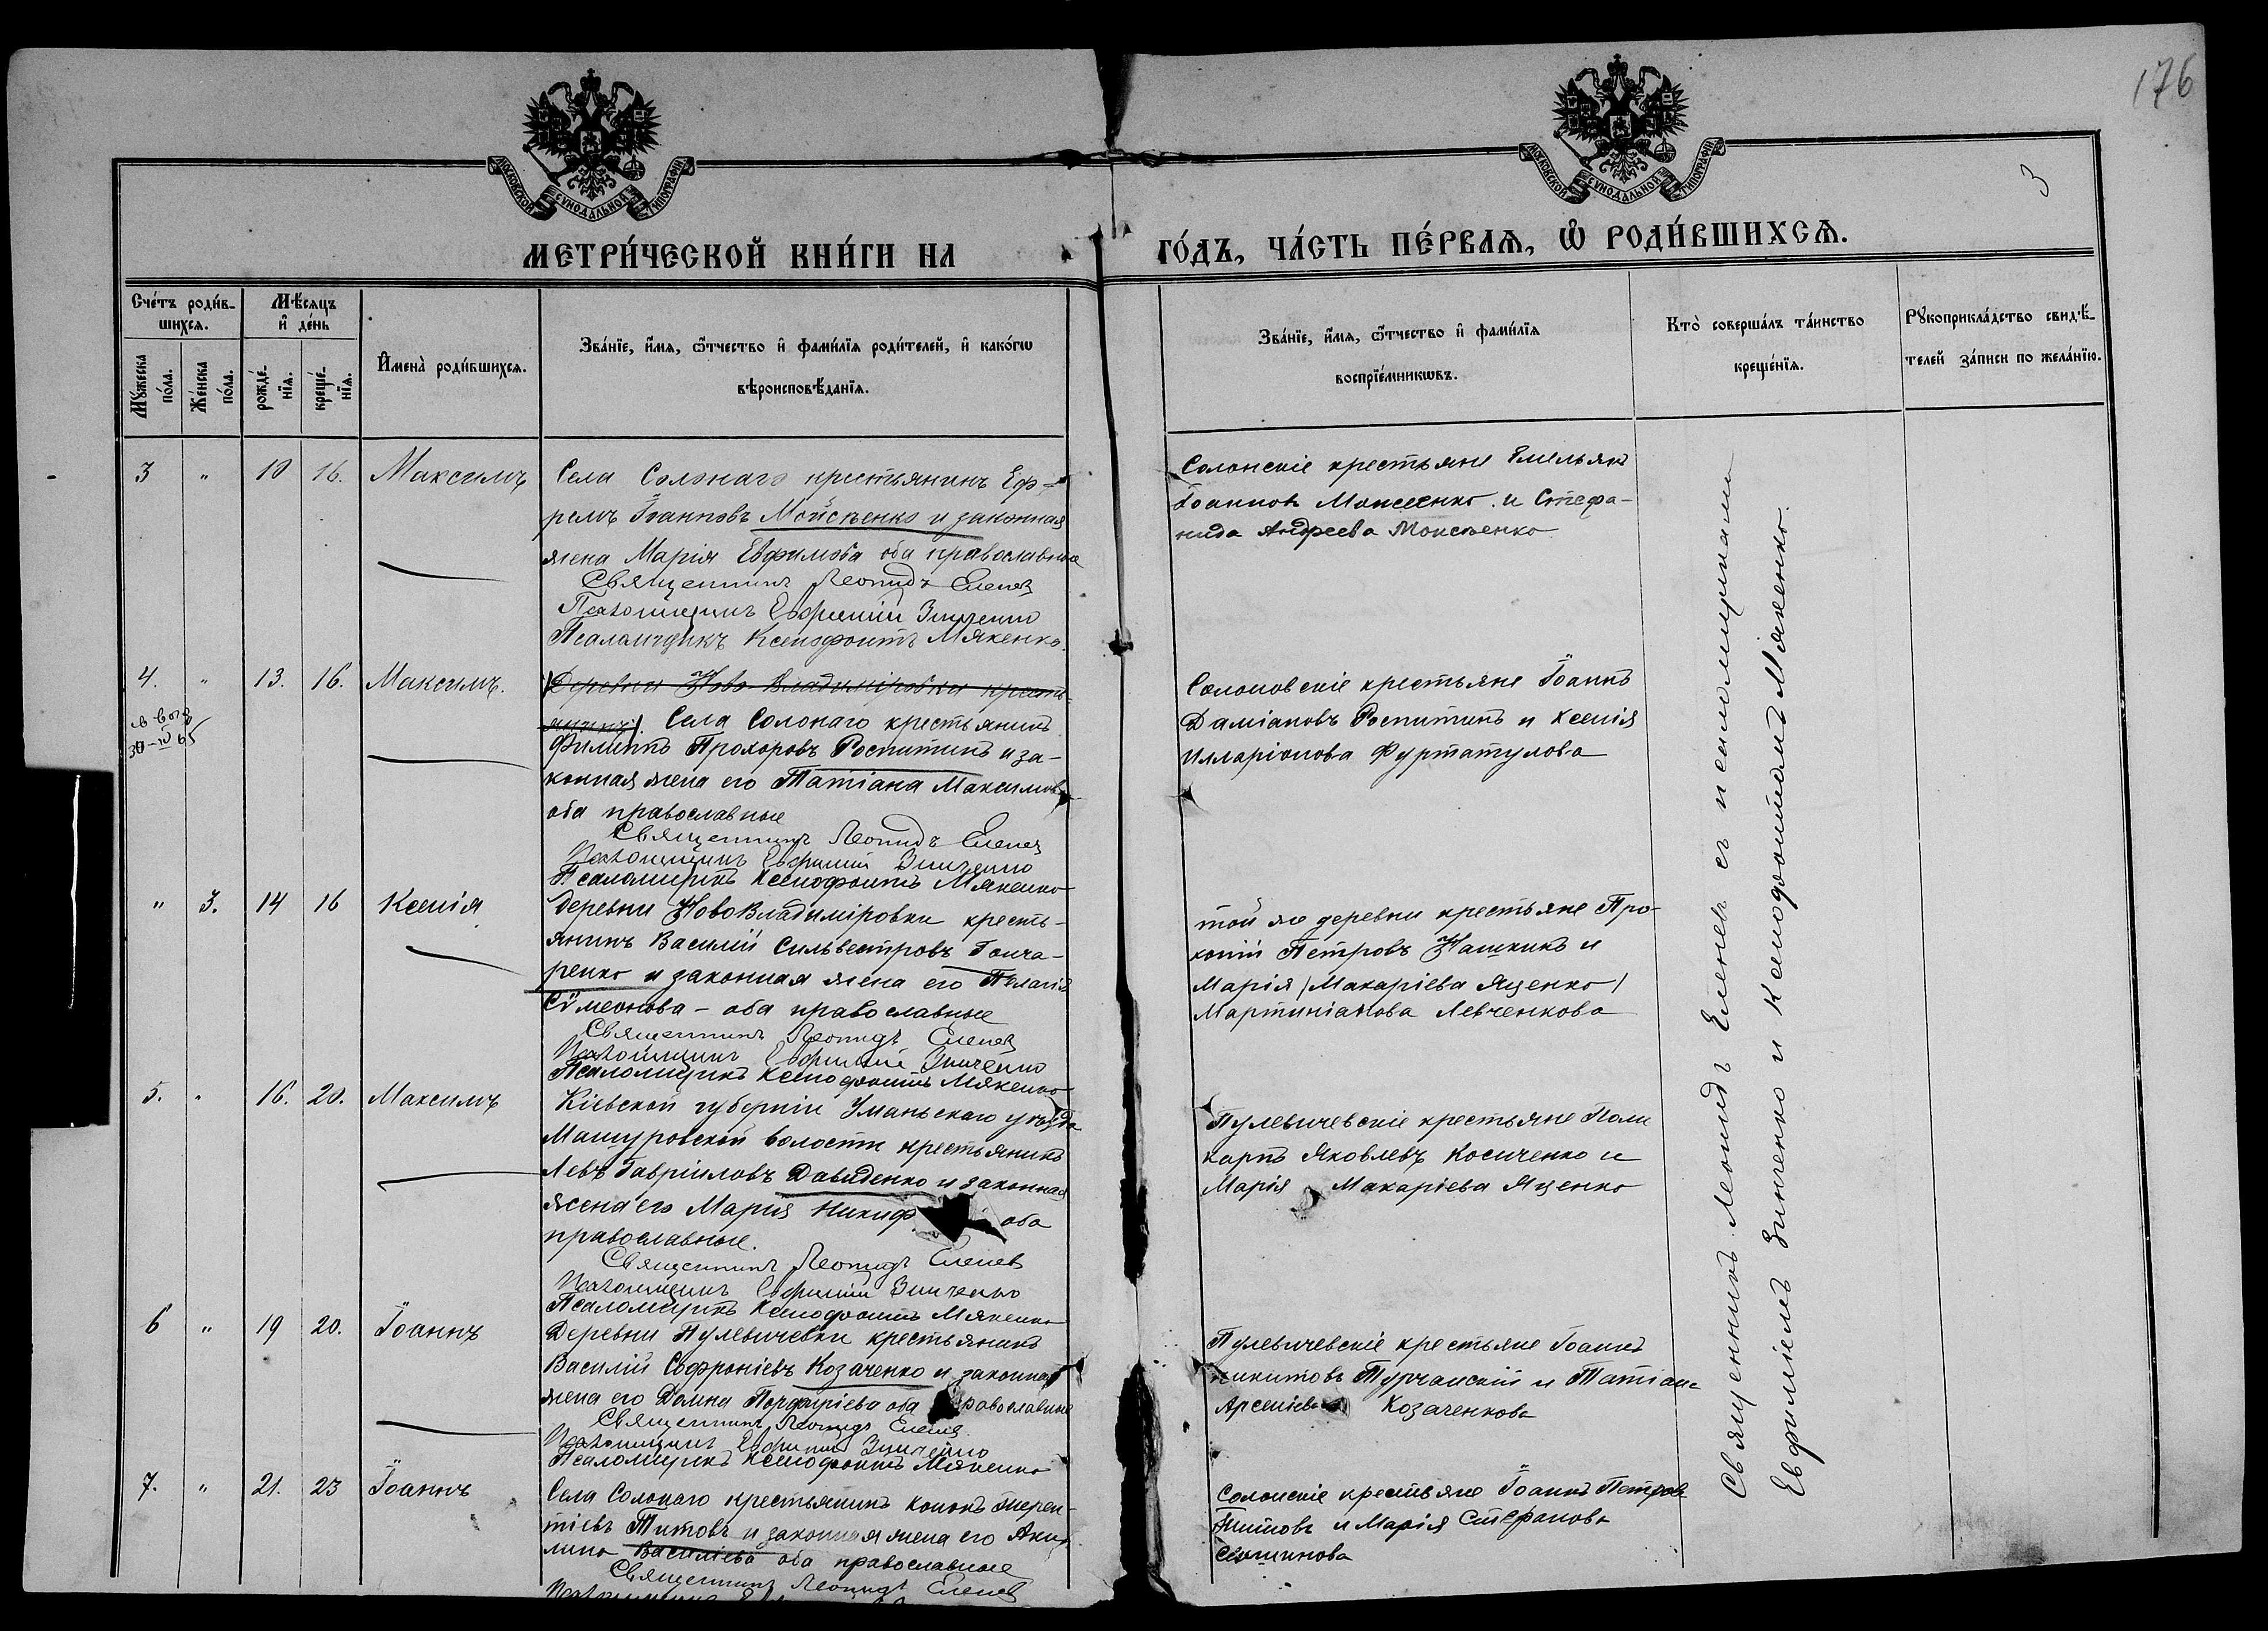 176
3
МОСКОВСКОЙ СУНОДАЛЬНОЙ ТИПОГРАФІИ
МОСКОВСКОЙ СУНОДАЛЬНОЙ ТИПОГРАФІИ
МЕТРИ́ЧЕСКОЙ КНИ́ГИ НА ГО́ДЪ, ЧА́СТЬ ПЕ́РВАЯ, Ѡ҆ РОДИ́ВШИХСЯ.
Сче́тъ роди́в-
шихся.
Мѣ́сяцъ
и҆ де́нь
Мꙋ́жеска
по́ла.
Же́нска
по́ла.
рожде́-
нїя.
креще́-
нїя.
И҆мена̀ роди́вшихся.
Зва́нїе, и҆́мя, ѻ҆́тчество и҆ фами́лїя роди́телей, и҆ како́гѡ
вѣроисповѣ́данїя.
Зва́нїе, и҆́мя, ѻ҆́тчество и҆ фами́лїя
воспрїе́мникѡвъ.
Кто̀ соверша́лъ та́инство
креще́нїя.
Рꙋкоприкла́дство свидѣ́-
телей за́писи по жела́нїю.
3 " 10 16. Максимъ
Села Солонаго крестьянинъ Еф-
ремъ Іоанновъ Мойсѣенко и законная
жена Марія Евфимова оба православные
Священникъ Леонидъ Еленев
Псаломщикъ Евфимій Зинченко
Псаломщикъ Ксенофонтъ Мякенко.
Солонскіе крестьяне Емельянъ
Іоанновъ Моисеенко и Стефа-
нида Андреева Моисѣенко
4. " 13. 16. Максимъ.
Деревни Ново-Владиміровки кресть-
янинъ Села Солонаго крестьянинъ
Филиппъ Прохоровъ Роспитинъ и за-
конная жена его Татіана Максимова
оба православные
Священникъ Леонидъ Еленев
Псаломщикъ Евфимій Зинченко
Псаломщикъ Ксенофонтъ Мякенко
Солоновскіе крестьяне Іоаннъ
Даміановъ Роспитинъ и Ксенія
Илларіонова Фуртатулова
" 3. 14 16 Ксенія
Деревни НовоВладиміровки кресть-
янинъ Василій Сильвестровъ Гонча-
ренко и законная жена его Пелагія
Сѵмеонова - оба православные
Священникъ Леонидъ Еленев
Псаломщикъ Евфимій Зинченко
Псаломщикъ Ксенофонтъ Мякенко
той же деревни крестьяне Про-
копій Петровъ Нашкинъ и
Марія /Макаріева Яценко/
Мартиніанова Левченкова
5. " 16. 20. Максимъ
Кіевской губерніи Уманьскаго уѣзда
Машуровской волости крестьянинъ
Левъ Гавріиловъ Давиденко и законная
жена его Мария Никиф оба
православные.
Священникъ Леонидъ Еленев
Псаломщикъ Евфимій Зинченко
Псаломщикъ Ксенофонтъ Мякенко
Пулевичевскіе крестьяне Поли
карпъ Яковлевъ Косиченко и
Марія Макаріева Яценко
6 " 19 20. Іоаннъ
Деревни Пулевичевки крестьянинъ
Василій Софроніевъ Козаченко и законная
жена его Домна Порфиріева оба православные
Священникъ Леонидъ Еленев
Псаломщикъ Евфимій Зинченко
Псаломщикъ Ксенофонтъ Мякенко
Пулевичевскіе крестьяне Іоаннъ
Никитовъ Турчанскій и Татіана
Арсеніева Козаченкова
7. " 21. 23 Іоаннъ
Села Солонаго крестьянинъ Кононъ Терен-
тіевъ Титовъ и законная жена его Аки-
лина Василіева оба православные
Священникъ Леонидъ Еленев
Солонскіе крестьяне Іоаннъ Петровъ
Титовъ и Марія Стефанова
Священникъ Леонидъ Еленевъ съ псаломщиками
Евфиміемъ Зинченко и Ксенофонтомъ Мякенко.